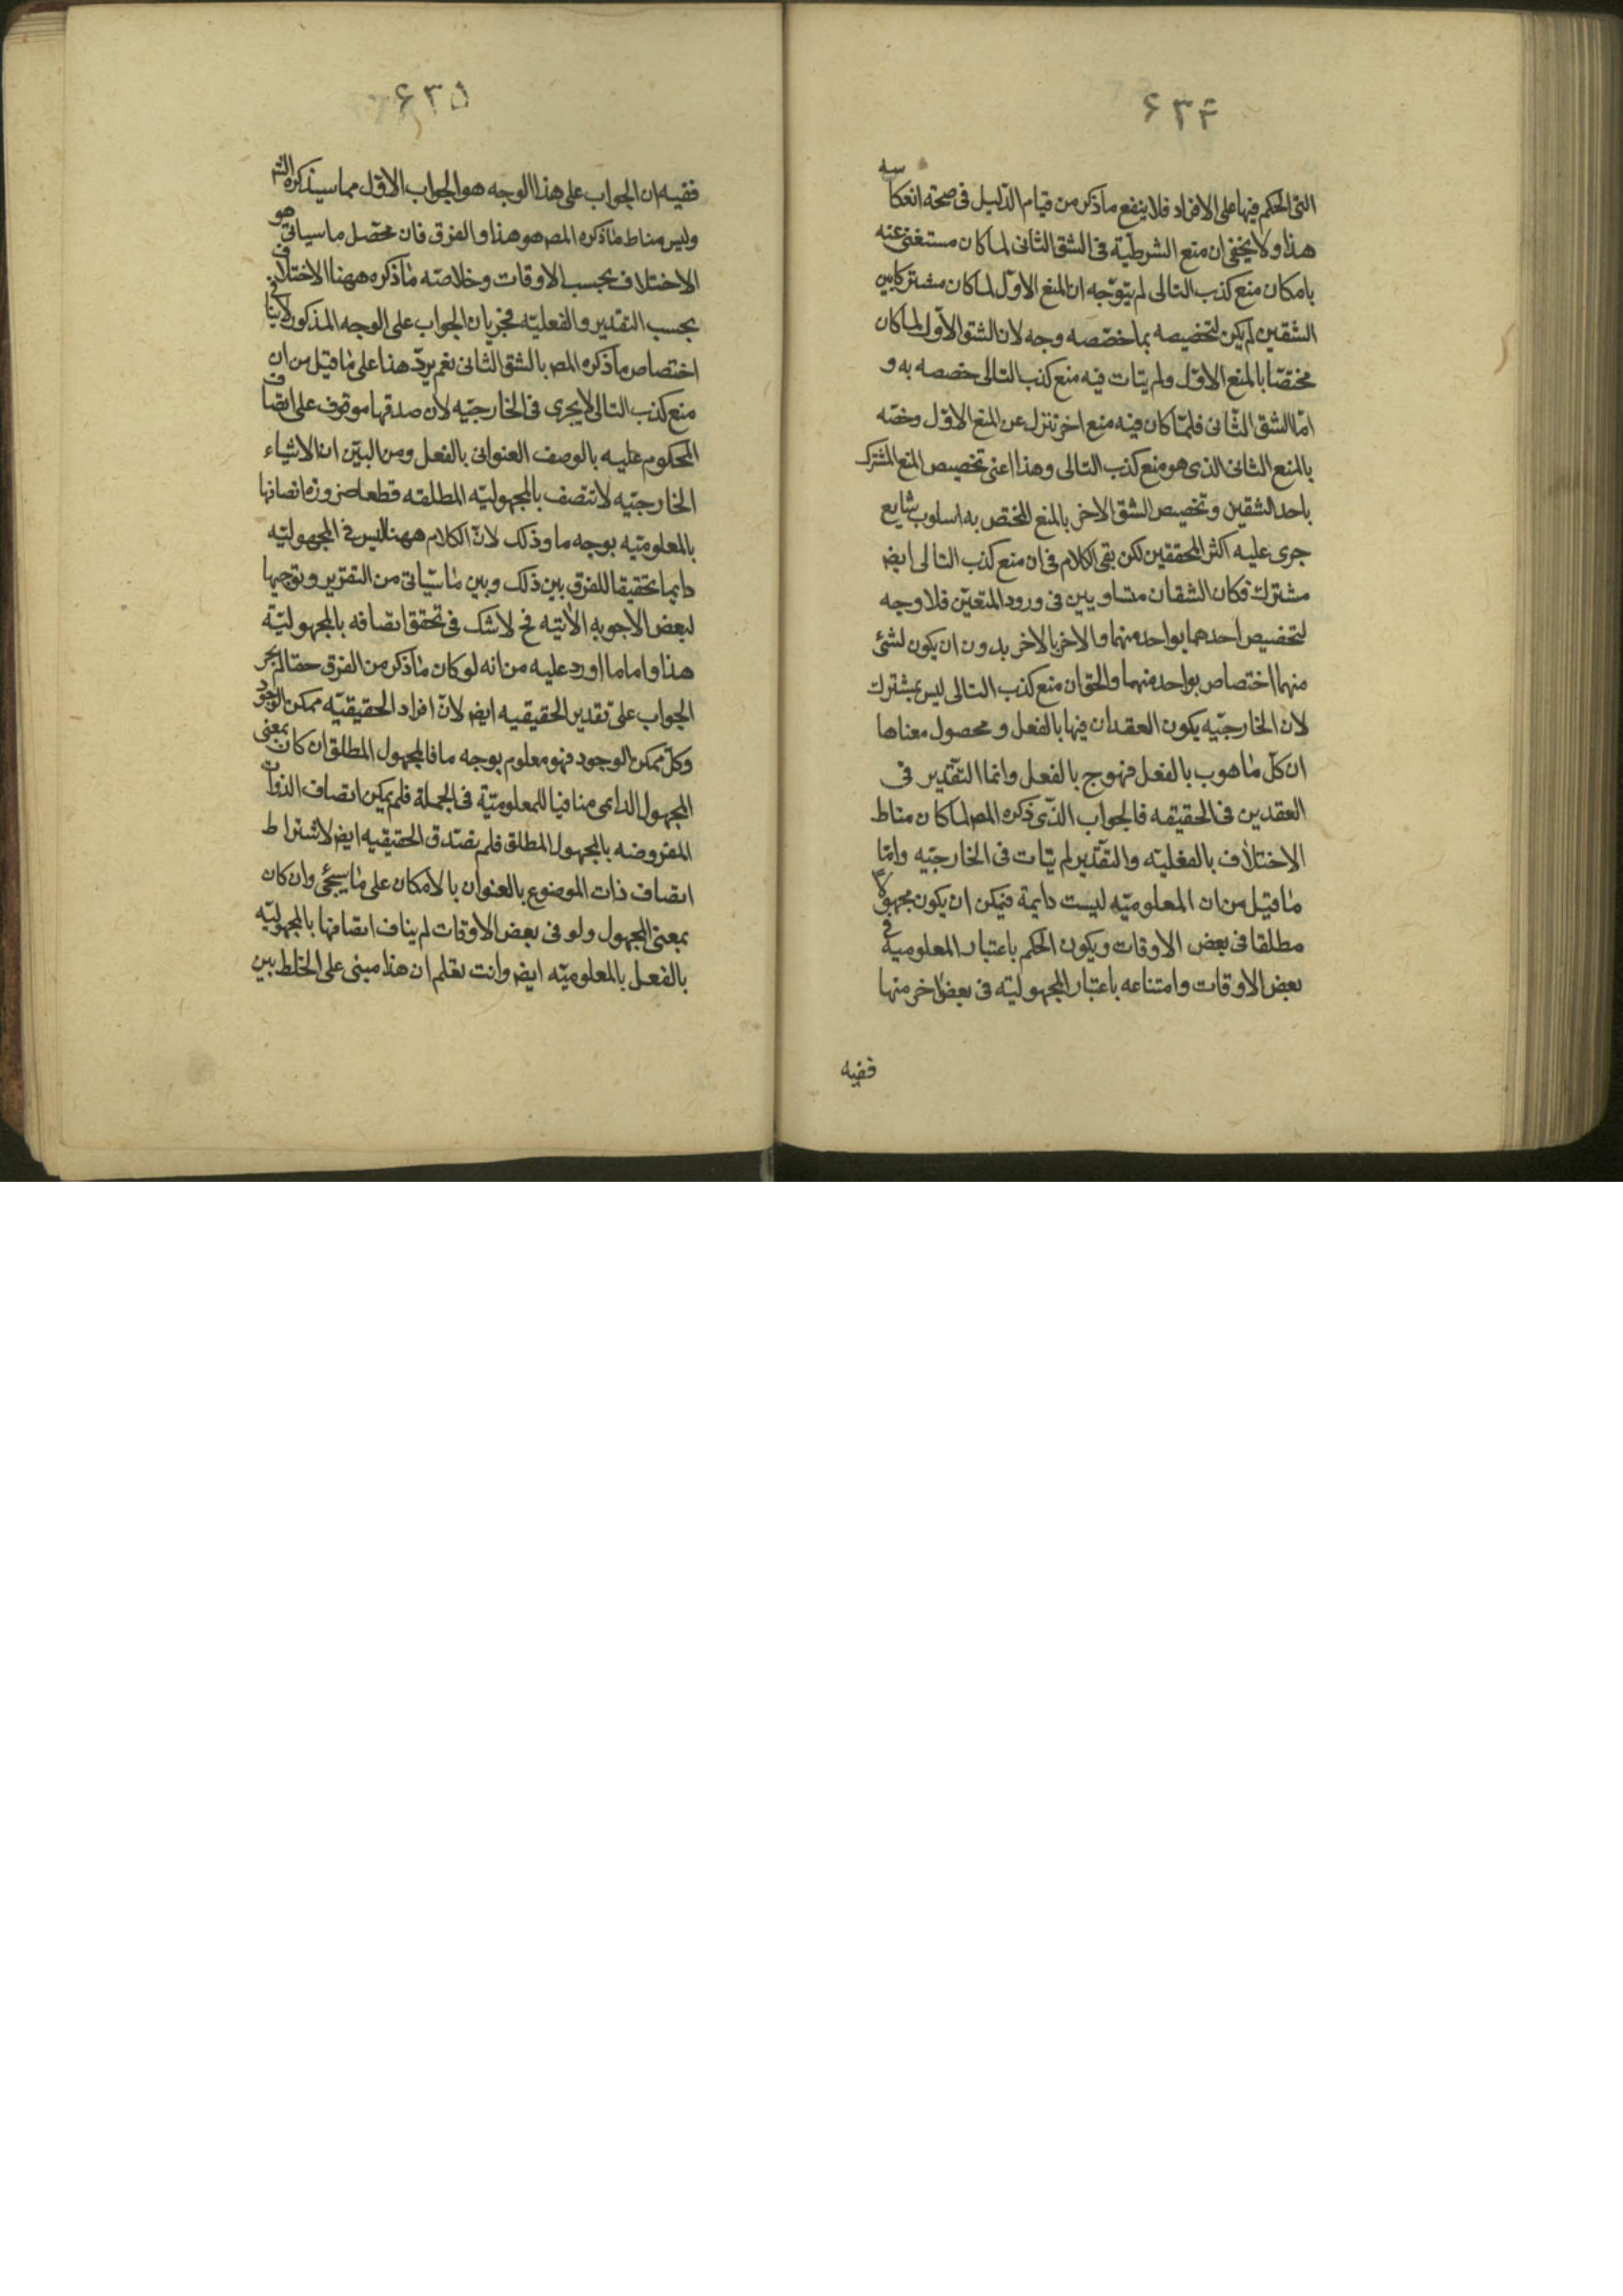 ۶۳۴
التى الحكم فيها على الافراد فلا ينفع ما ذكر من قيام الدليل فى صحة انعكاسه
هذا ولا يخفى ان منع الشرطية فى الشق الثانى لما كان مستغنى عنه
بامكان منع كذب التالى لم يتوجه ان المنع الاول لما كان مشتركا بين
الشقين لم يكن لتخصيصه بما خصصه وجه لان الشق الاول لما كان
مختصا بالمنع الاول ولم يتات فيه منع كذب التالى خصصه به و
اما الشق الثانى فلما كان فيه منع اخر تنزل عن المنع الاول وخصه
بالمنع الثانى الذى هو منع كذب التالى وهذا اعنى تخصيص المنع المشترك
باحد الشقين وتخصيص الشق الاخر بالمنع المختص به اسلوب شايع
جرى عليه اكثر المحققين لكن بقى الكلام فى ان منع كذب التالى ايض
مشترك فكان الشقان متساويين فى ورود المنعين فلا وجه
لتخصيص احدهما بواحد منهما والاخر بالاخر بدون ان يكون لشئ
منهما اختصاص بواحد منهما والحق ان منع كذب التالى ليس بمشترك
لان الخارجيه يكون العقدان فيها بالفعل و محصول معناها
ان كل ما هو ب بالفعل فهو ج بالفعل وانما التقدير فى
العقدين فى الحقيقه فالجواب الذى ذكره المص لما كان مناط
الاختلاف بالفعليه والتقدير لم يتات فى الخارجيه واما
ما قيل من ان المعلوميه ليست دايمة فيمكن ان يكون مجهولا
مطلقا فى بعض الاوقات ويكون الحكم باعتبار المعلومية فى
بعض الاوقات وامتناعه باعتبار المجهوليته فى بعض اخر منها
ففيه
۶۳۵
ففيه ان الجواب على هذا الوجه هو الجواب الاول مما سيذكره الش
وليس مناط ما ذكره المص هو هذا والفرق فان محصل ما سياتى هو
الاختلاف بحسب الاوقات وخلاصته ما ذكره ههنا الاختلاف
بحسب التقدير والفعليه فجريان الجواب على الوجه المذكور لا ينافى
اختصاص ما ذكره المص بالشق الثانى نعم يرد هذا على ما قيل من ان
منع كذب التالى لا يجرى فى الخارجيه لان صدقها موقوف على اتصاف
المحكوم عليه بالوصف العنوانى بالفعل ومن البين ان الاشياء
الخارجيه لا تتصف بالمجهوليه المطلقه قطعا ضرورة اتصافها
بالمعلوميه بوجه ما وذلك لان الكلام ههنا ليس فى المجهوليه
دايما تحقيقا للفرق بين ذلك وبين ما سياتى من التقرير وتوجيها
لبعض الاجوبه الاتيه فح لا شك فى تحقق اتصافه بالمجهوليه
هذا واما ما اورد عليه من انه لو كان ما ذكر من الفرق حقا لم يجر
الجواب على تقدير الحقيقيه ايض لان افراد الحقيقيه ممكن الوجود
وكل ممكن الوجود فهو معلوم بوجه ما فالمجهول المطلق ان كان بمعنى
المجهول الدايمى منافيا للمعلوميه فى الجملة فلم يمكن اتصاف الذوات
المفروضه بالمجهول المطلق فلم تصدق الحقيقيه ايض لاشتراط
اتصاف ذات الموضوع بالعنوان بالامكان على ما سيجئ وان كان
بمعنى المجهول ولو فى بعض الاوقات لم يناف اتصافها بالمجهوليه
بالفعل بالمعلوميه ايض وانت تعلم ان هذا مبنى على الخلط بين